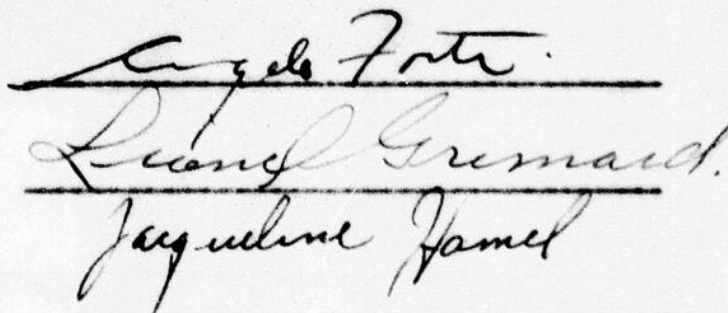 Angelo Forte.
Lionel Grimard.
Jacqueline Hamel